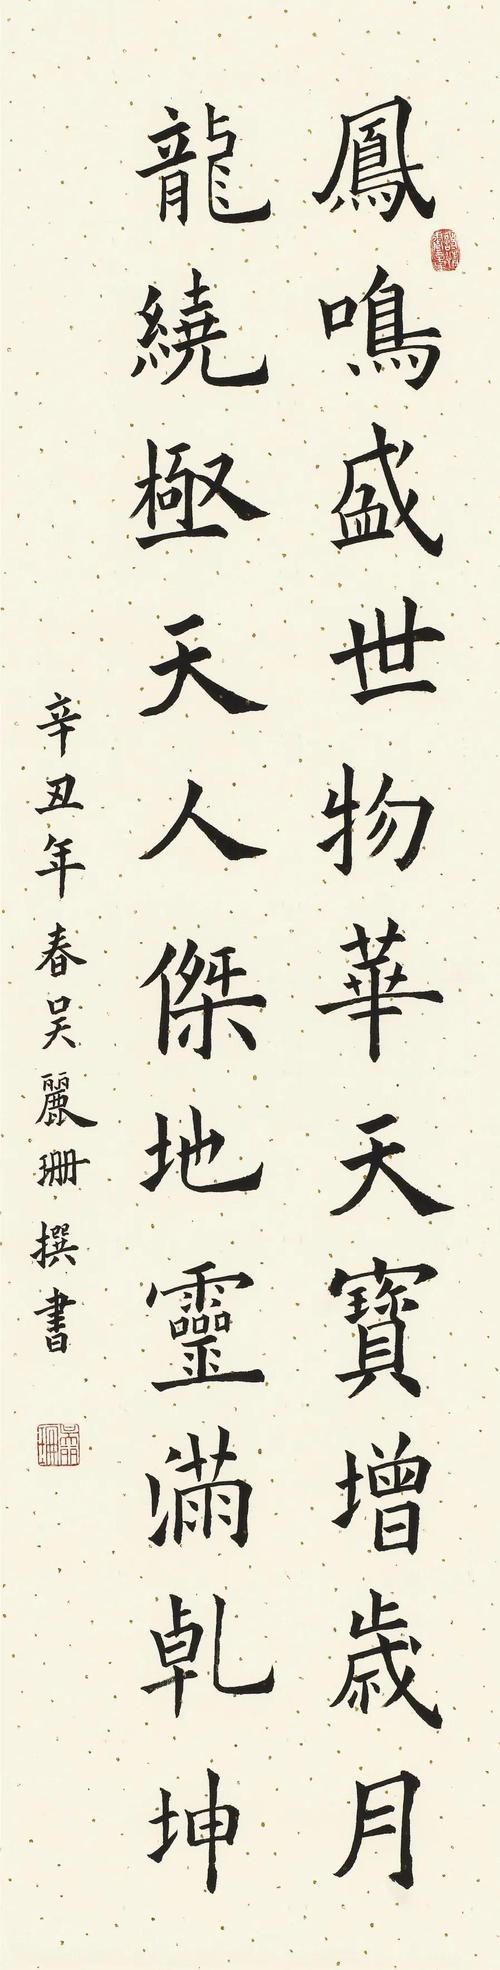 鳳鳴盛世物華天寶增歲月
龍繞極天人傑地靈滿乾坤
辛丑年春吳麗珊撰書